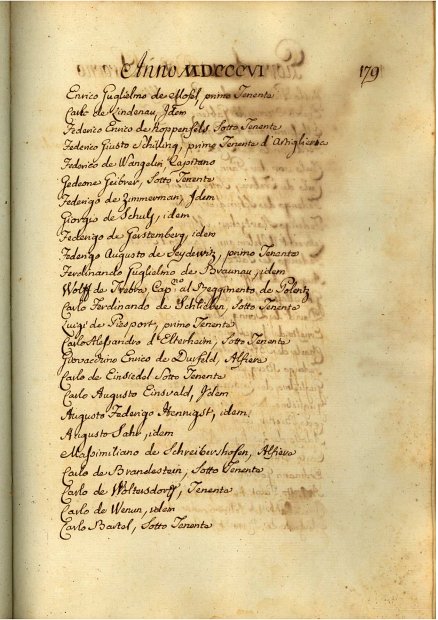 Anno MDCCCVI 179
Enrico Guglielmo de Mosel, primo Tenente
Carlo de Lindenau, Idem
Federico Enrico de Koppenfels Sotto Tenente
Federico Giusto Schilling, primo Tenente d'Artiglieria
Federico de Wangelin Capitano
Gedeone Geibner, Sotto Tenente
Federigo de Zimmerman, Idem
Giorgio de Schulz, idem
Federigo de Gerstemberg, idem
Federigo Augusto de Seydewitz, primo Tenente
Ferdinando Guglielmo de Braunau, idem
Wolff de Trebra, Cap.no al Reggimento de Polentz
Carlo Ferdinando de Schlieben, Sotto Tenente
Luigi de Piesport, primo Tenente
Carlo Alessandro d'Elterheim, Sotto Tenente
Giovacchino Enrico de Durfeld, Alfiere
Carlo de Einsiedel Sotto Tenente
Carlo Augusto Einsvald, Idem
Augusto Federigo Hennigst, idem
Augusto Sahr, idem
Massimiliano de Schreibershofen, Alfiere
Carlo de Brandestein, Sotto Tenente
Carlo de Woltersdorff, Tenente
Carlo de Werun, idem
Carlo Bartol, Sotto Tenente